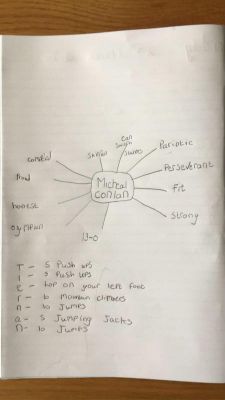 can
switch
Skillful
stances
Pariotic
careful
Perseverant
Proud
Micheal
conlan
Fit
honest
Strong
olympian
13-0
T - 5 Push ups
I - 5 Push ups
E - hop on your left foot
r - 10 Mountain climbers
n - 10 Jumps
a - 5 Jumping Jacks
n - 10 Jumps